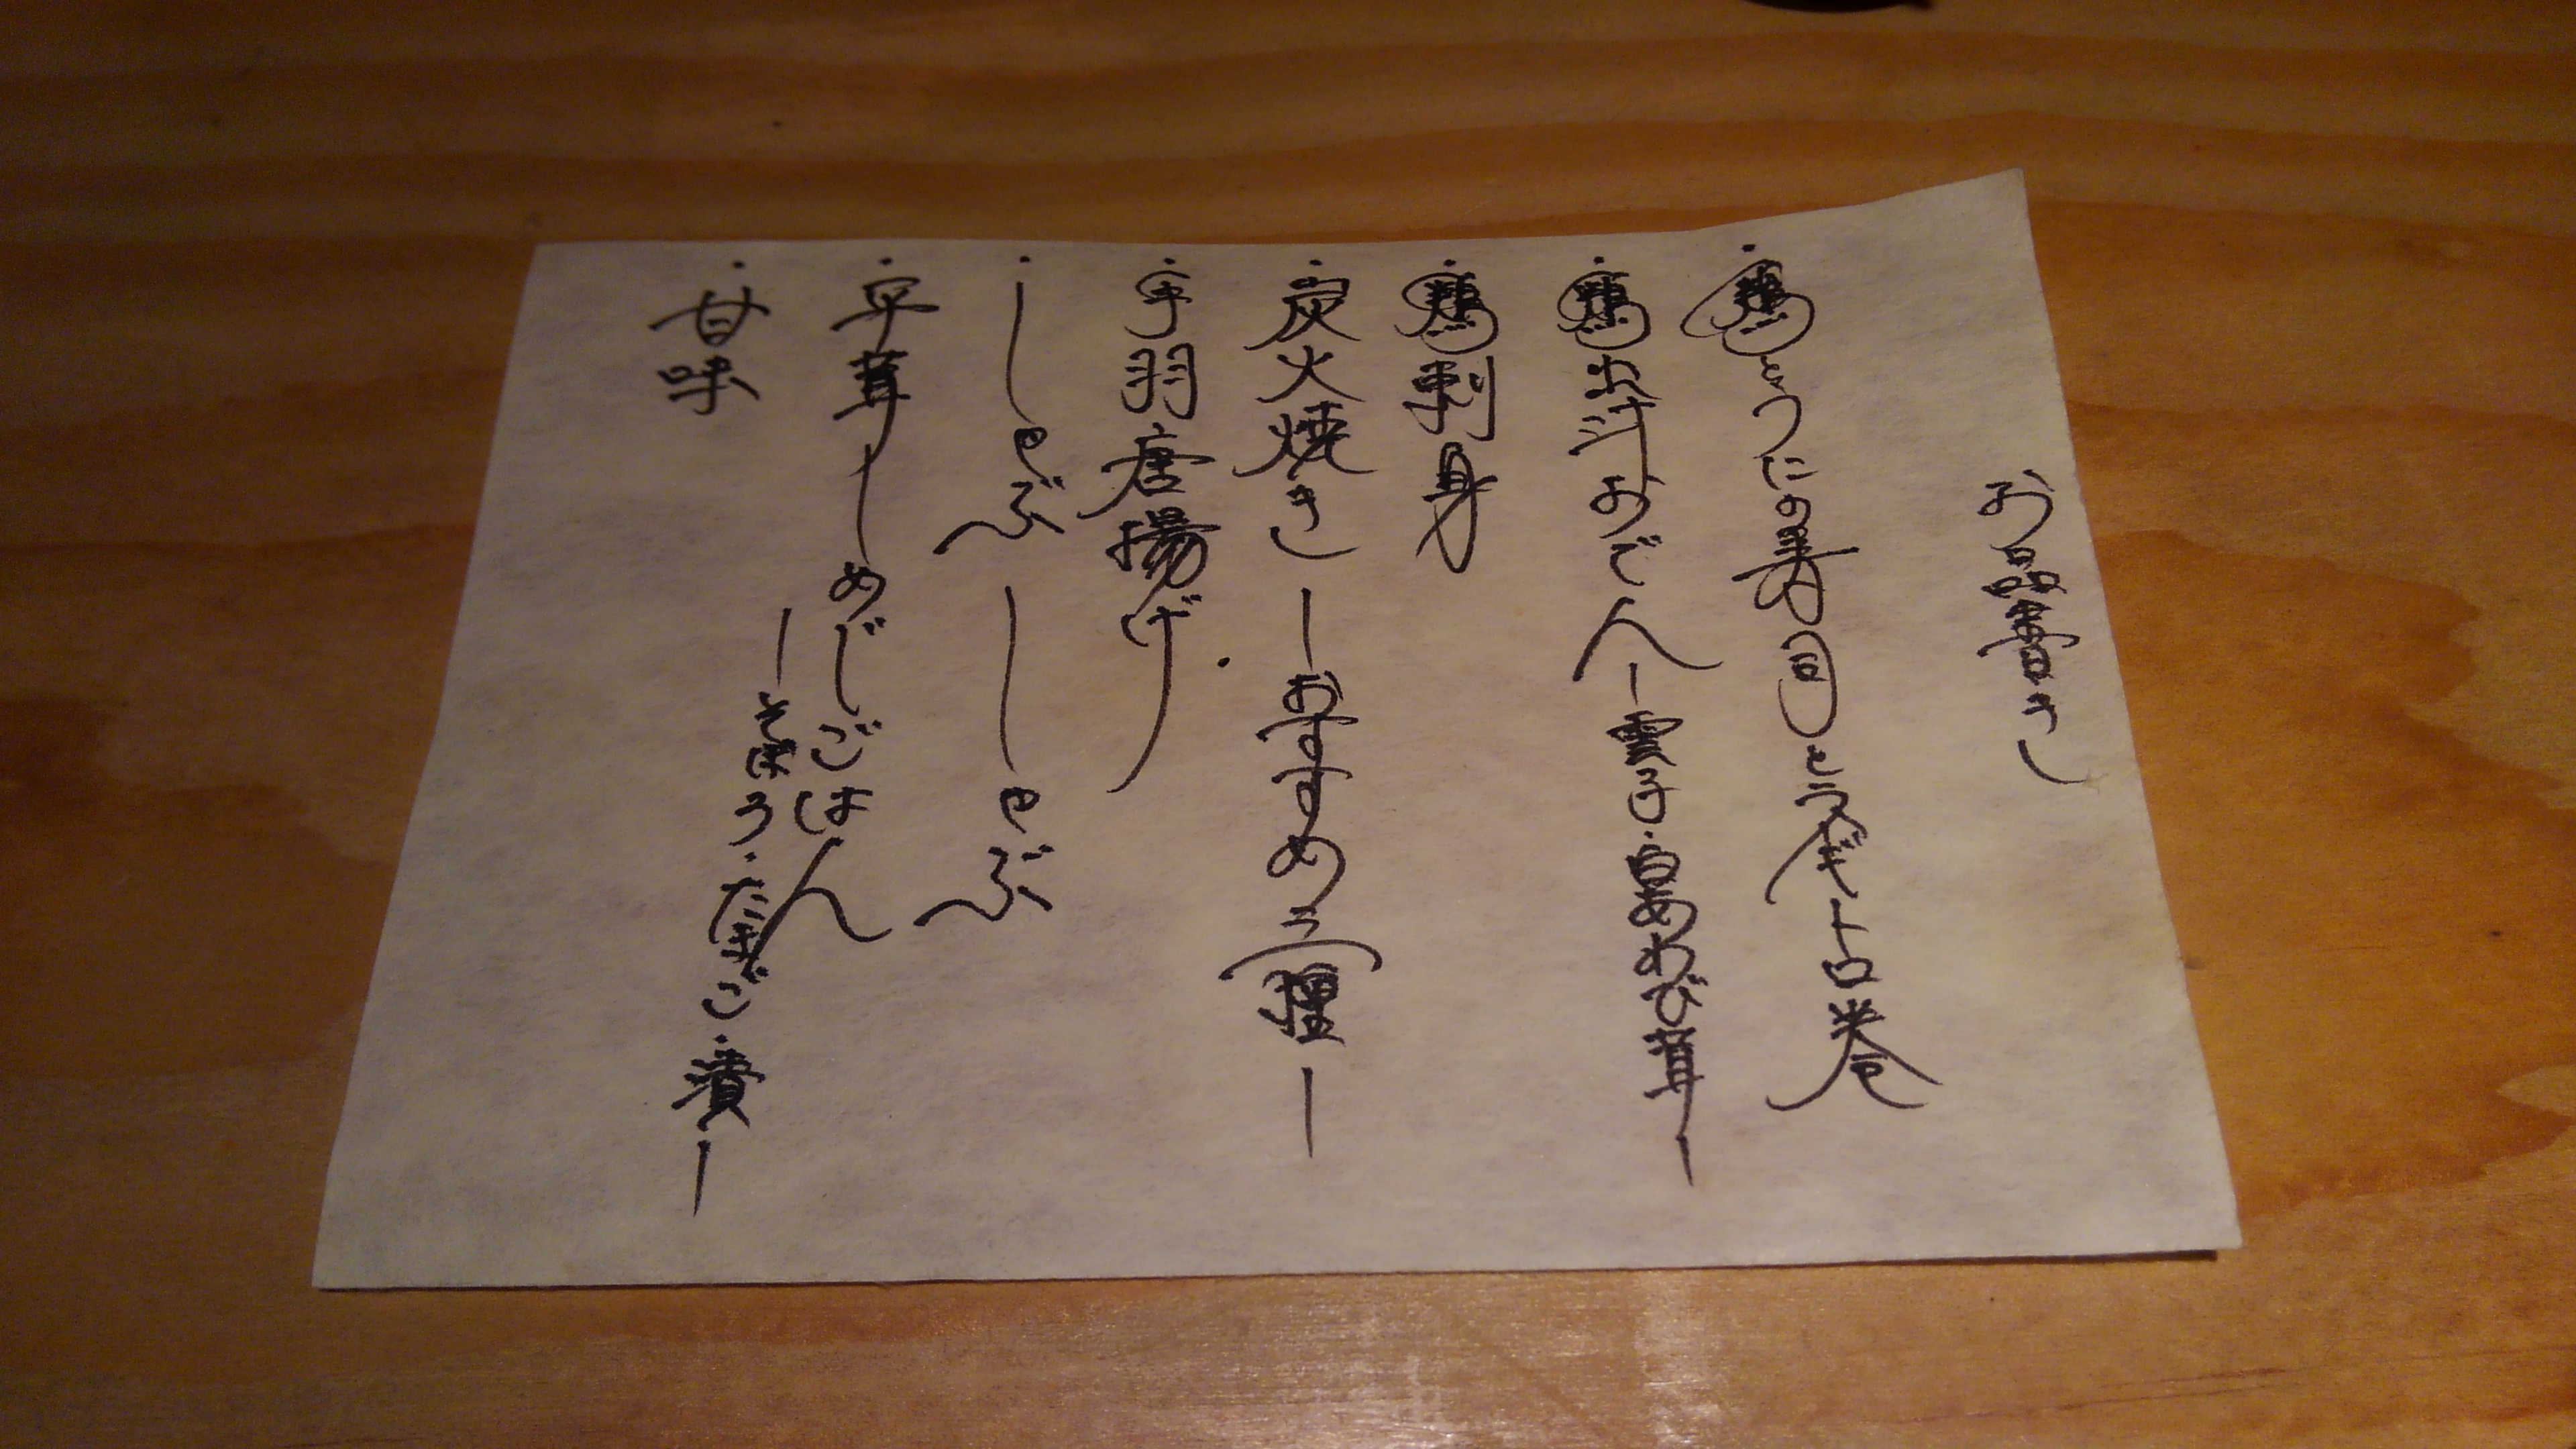 お品書き
・鶏とうにの
・鶏だしおでん ー雲子・あわび茸ー
・鶏刺身
・炭火焼き ーおすすめ 種ー
・手羽唐揚げ
・しゃぶしゃぶ
・平茸しめじごはん
ーそぼろ・たまご・漬ー
・甘味